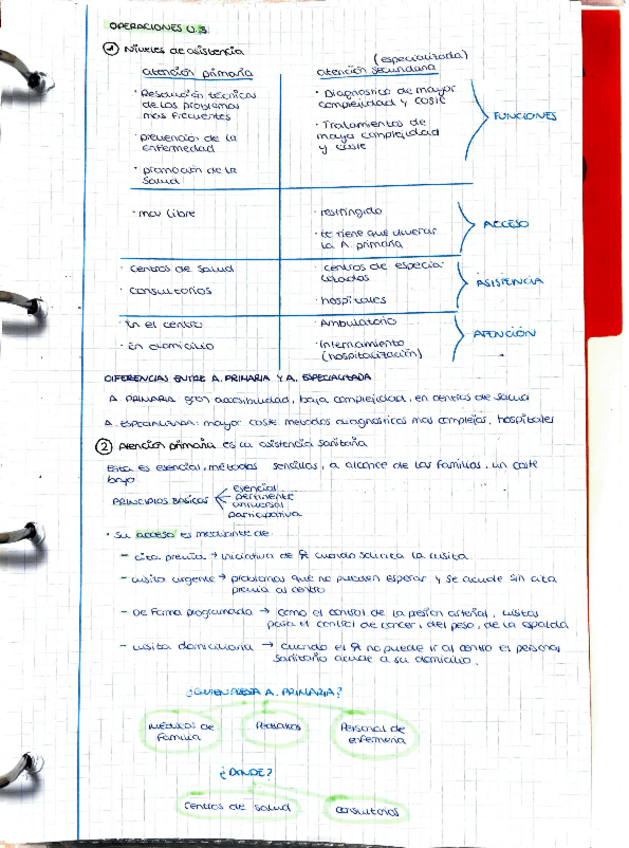 OPERACIONES U.3.
1 Niveles de asistencia
atención primaria
(especializada)
atención secundaria
· Resolución técnicas
de los problemas
más frecuentes
· prevención de la
enfermedad
· promoción de la
salud
· Diagnostico de mayor
complejidad y coste
· Tratamientos de
mayor complejidad
y coste
FUNCIONES
· muy libre
· restringido
· te tiene que derivar
la A. primaria
ACCESO
· centros de salud
· consultorios
· centros de especia-
lidades
· hospitales
ASISTENCIA
· En el centro
· En domicilio
· Ambulatorio
· Internamiento
(hospitalización)
ATENCIÓN
DIFERENCIAS ENTRE A. PRIMARIA Y A. ESPECIALIZADA
A. PRIMARIA: gran accesibilidad, baja complejidad, en centros de salud
A. ESPECIALIZADA: mayor coste, metodos diagnosticos mas complejos, hospitales
2 Atención primaria es la asistencia sanitaria
Esta es esencial, métodos sencillos, a alcance de las familias, un coste
bajo
PRINCIPIOS BASICOS
esencial
pertinente
universal
participativa
· Su acceso es mediante de:
- cita previa → iniciativa de cuando solicita la visita
- visita urgente → problemas que no pueden esperar y se acude sin cita
previa al centro
- De forma programada → como el control de la presion arterial, visitas
para el control de cancer, del peso, de la espalda
- visita domiciliaria → cuando el no puede ir al centro el personal
sanitario acude a su domicilio.
¿QUIEN PRESTA A. PRIMARIA?
Médicos de
familia
Pediatras
Personal de
enfermeria
¿DONDE?
Centros de salud
consultorios